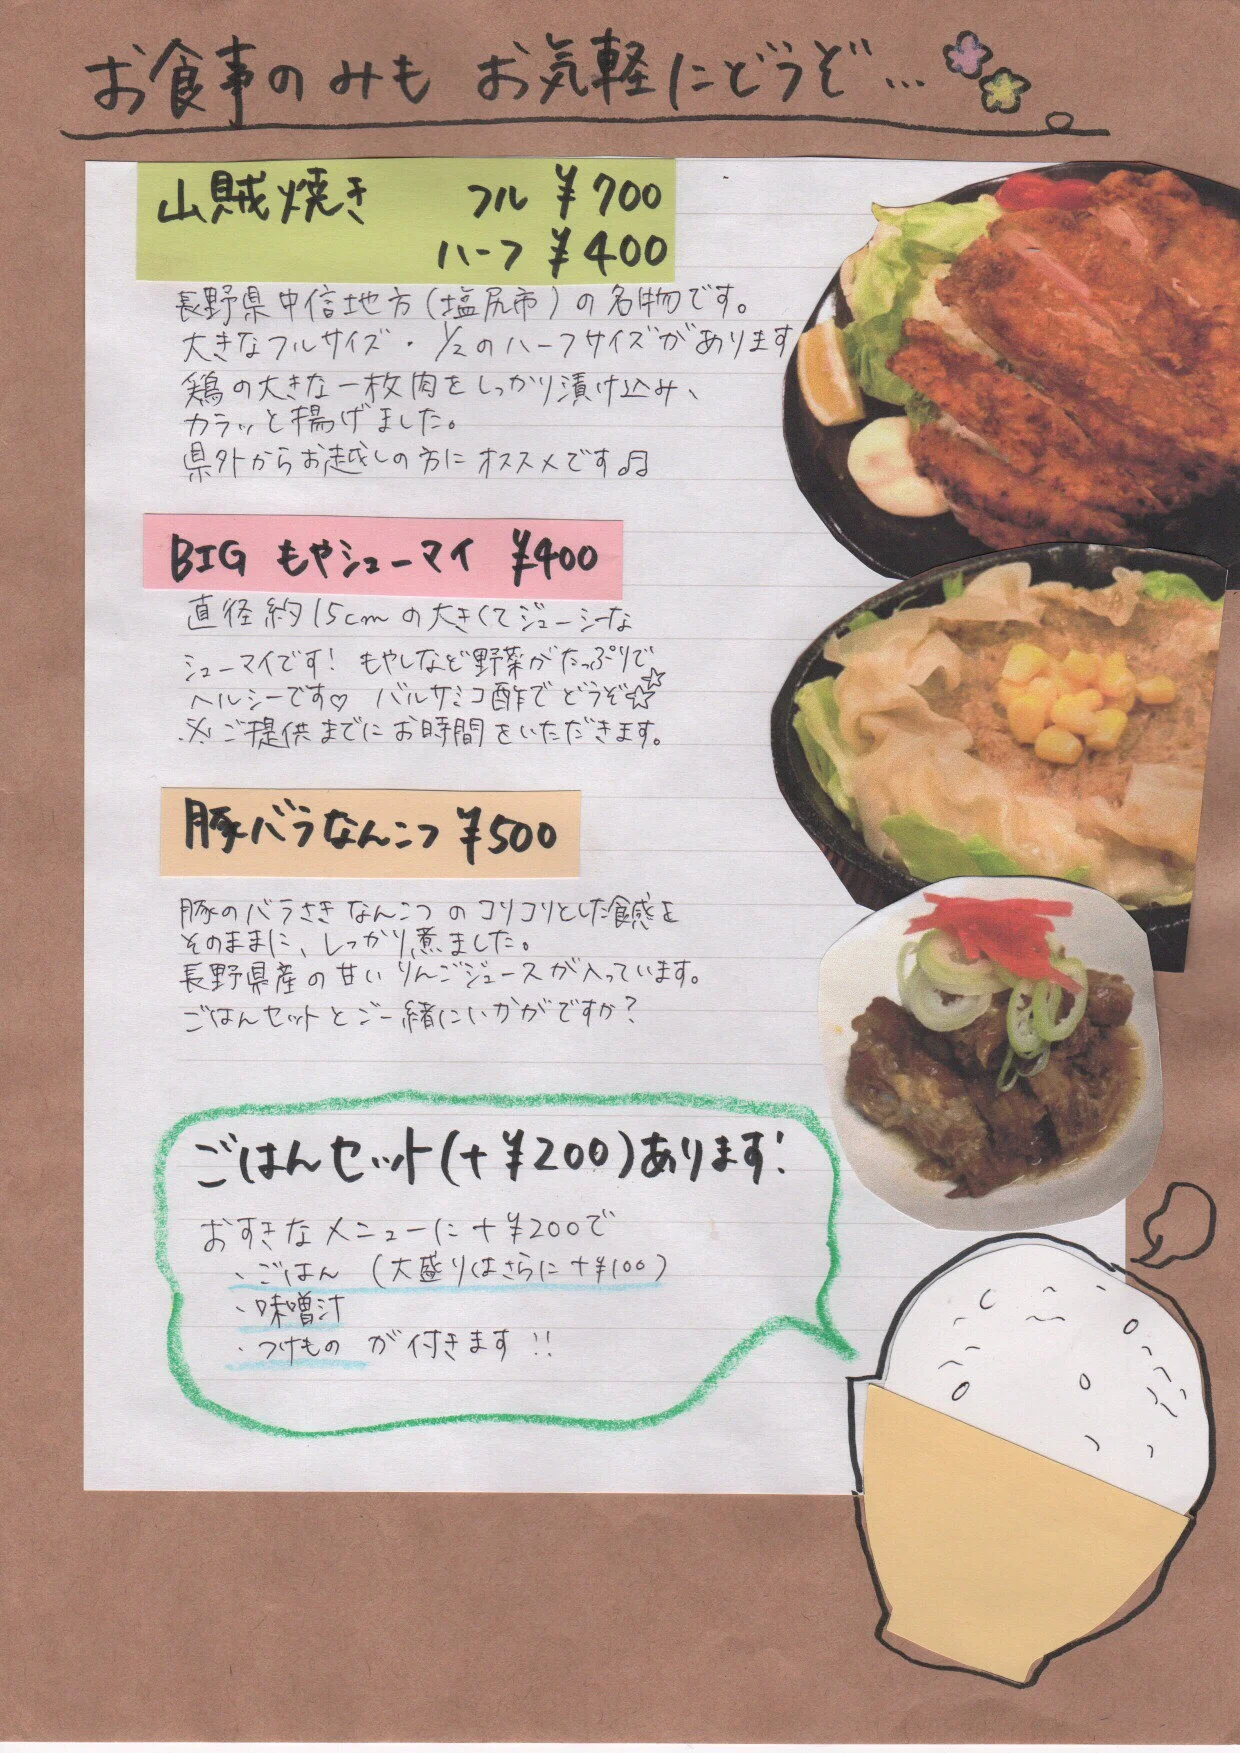 お食事のみも お気軽にどうぞ…
山賊焼き フル ¥700
ハーフ ¥400
長野県中信地方(塩尻市)の名物です。
大きなフルサイズ・1/2のハーフサイズがあります
鶏の大きな一枚肉をしっかり漬け込み、
カラッと揚げました。
県外からお越しの方にオススメです♫
BIG もやシューマイ ¥400
直径約15cmの大きくてジューシーな
シューマイです! もやしなど野菜がたっぷりで
ヘルシーです♡ バルサミコ酢でどうぞ☆☆
※ご提供までにお時間をいただきます。
豚バラなんこつ ¥500
豚のバラさきなんこつのコリコリとした食感を
そのままに、しっかり煮ました。
長野県産の甘いりんごジュースが入っています。
ごはんセットとご一緒にいかがですか?
ごはんセット(+¥200)あります!
おすきなメニューに+¥200で
・ごはん (大盛りはさらに+¥100)
・味噌汁
・つけもの が付きます!!